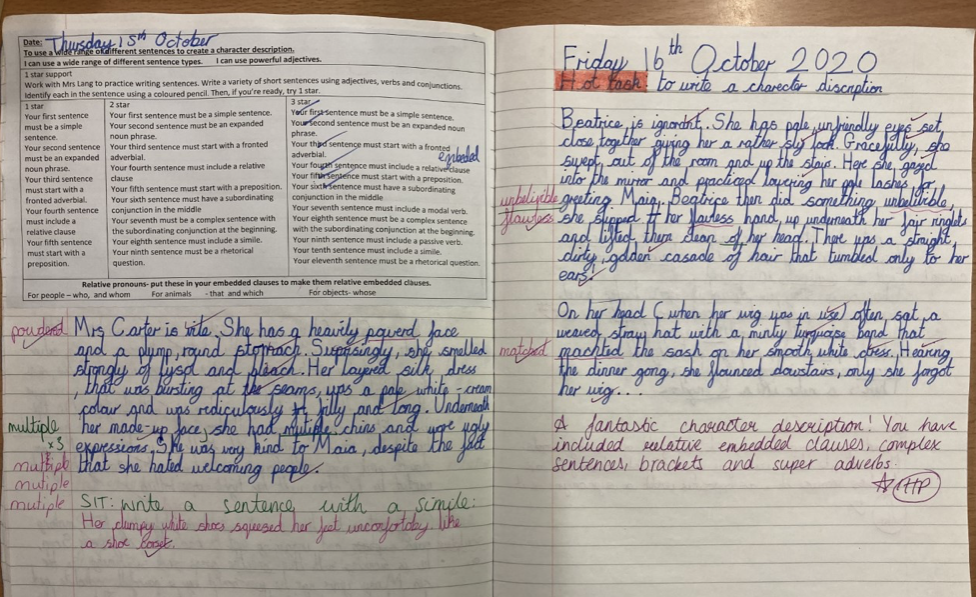 Date: Thursday 15th October
To use a wide range of different sentences to create a character description.
I can use a wide range of different sentence types. I can use powerful adjectives.
1 star support
Work with Mrs Lang to practice writing sentences. Write a variety of short sentences using adjectives, verbs and conjunctions.
Identify each in the sentence using a coloured pencil. Then, if you're ready, try 1 star.
1 star
Your first sentence
must be a simple
sentence.
Your second sentence
must be an expanded
noun phrase.
Your third sentence
must start with a
fronted adverbial.
Your fourth sentence
must include a
relative clause
Your fifth sentence
must start with a
preposition.
2 star
Your first sentence must be a simple sentence.
Your second sentence must be an expanded
noun phrase.
Your third sentence must start with a fronted
adverbial.
Your fourth sentence must include a relative
clause
Your fifth sentence must start with a preposition.
Your sixth sentence must have a subordinating
conjunction in the middle
Your seventh must be a complex sentence with
the subordinating conjunction at the beginning.
Your eighth sentence must include a simile.
Your ninth sentence must be a rhetorical
question.
3 star
Your first sentence must be a simple sentence.
Your second sentence must be an expanded noun
phrase.
Your third sentence must start with a fronted
adverbial.
embeded
Your fourth sentence must include a relative clause
Your fifth sentence must start with a preposition.
Your sixth sentence must have a subordinating
conjunction in the middle
Your seventh sentence must include a modal verb.
Your eighth sentence must be a complex sentence
with the subordinating conjunction at the beginning.
Your ninth sentence must include a passive verb.
Your tenth sentence must include a simile.
Your eleventh sentence must be a rhetorical question.
Relative pronouns- put these in your embedded clauses to make them relative embedded clauses.
For people – who, and whom For animals - that and which For objects- whose
Mrs Carter is vile. She has a heavily powerd face
and a plump, round stomach. Suprisingly, she smelled
strongly of lysol and bleach. Her layered silk dress
, that was bursting at the seams, was a pale white-cream
colour and was rediculously frilly and long. Underneath
multiple
x3
her made-up face, she had mutiple chins and wore ugly
expressions. She was very kind to Maia, despite the fact
multiple
that she hated welcoming people.
mutiple
mutiple
SIT: Write a sentence with a simile:
Her plumpy white shoes squeesed her feet unconfortday like
a shoe
Friday 16th October 2020
Hot task to write a charecter discription
Beatrice is ignorant. She has pale, unfriendly eyes set
close together giving her a rather sly look. Gracefully, she
swept out of the room and up the stair. Here she, gazed
into the mirror and practiced lowering her pale lashes for
unbelivible
greeting Maia. Beatrice then did something unbelibible,
flawless
she slipped her flawless hand, up underneath her fair ringlets
and lifted them clean of her head. There was a straight,
dirty, golden casade of hair that tumbled only to her
ears!
On her head (when her wig was in use) often, sat a
weaved straw hat with a minty turquoise band that
matched
machted the sash on her smooth, white dress. Hearing
the dinner gong, she flounced downstairs, only she forgot
her wig...
A fantastic character description! You have
included relative embedded clauses, complex
sentences, brackets and super adverbs.